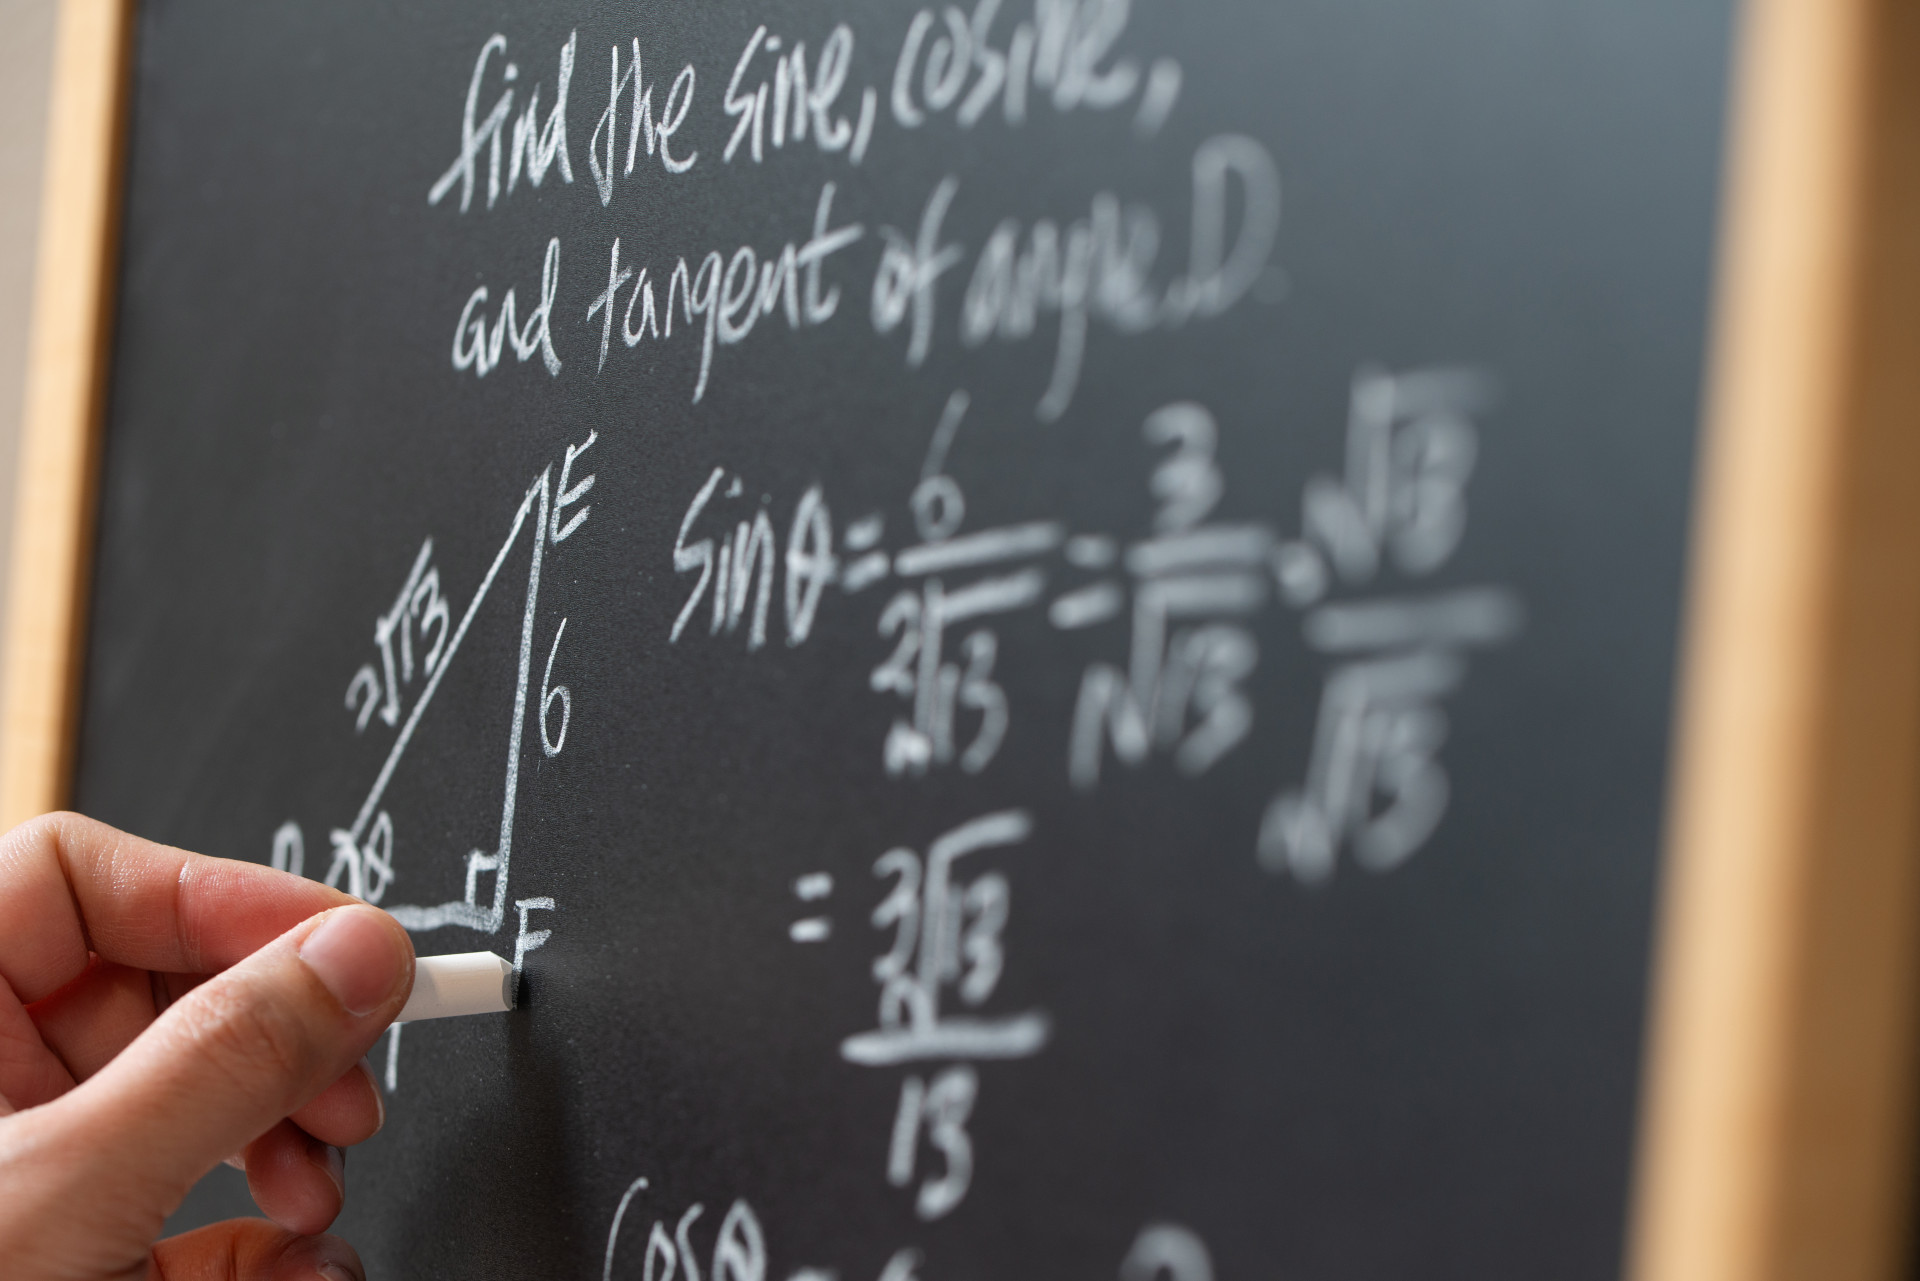 find the sine, cosine,
and tangent of angle D.
E
2√13
6
θ
F
sin θ = 6/2√13 = 3/√13 · √13/√13
= 3√13/13
cos θ =